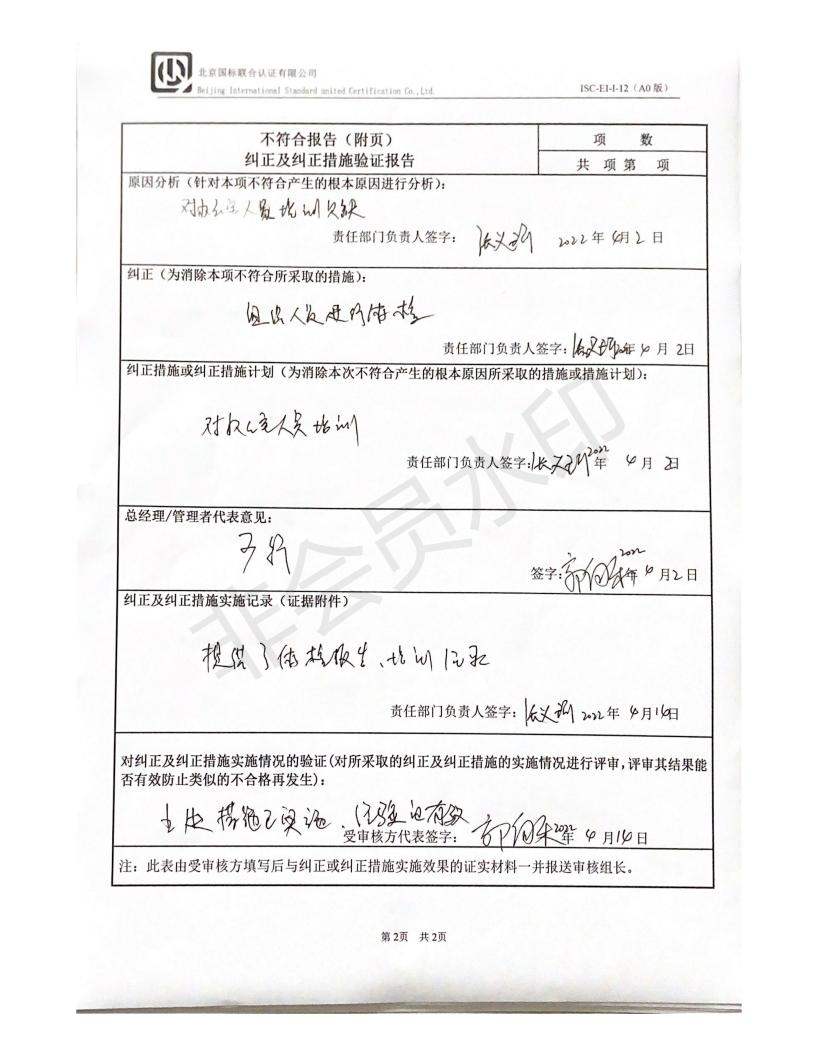 北京国标联合认证有限公司
Beijing International Standard united Certification Co., Ltd.
ISC-EI-I-12（A0 版）
不符合报告（附页）
纠正及纠正措施验证报告
项 数
共 项 第 项
原因分析（针对本项不符合产生的根本原因进行分析）：
对办公室人员培训欠缺
责任部门负责人签字： 2022 年 4月 2 日
纠正（为消除本项不符合所采取的措施）：
人员进行体检
责任部门负责人签字： 年 4 月 2日
纠正措施或纠正措施计划（为消除本次不符合产生的根本原因所采取的措施或措施计划）：
对办公室人员培训
责任部门负责人签字： 2022 年 4 月 2日
总经理/管理者代表意见：
可行
签字： 2022 年 4 月 2 日
纠正及纠正措施实施记录（证据附件）
提供了体检报告、培训记录
责任部门负责人签字： 2022 年 4 月14日
对纠正及纠正措施实施情况的验证（对所采取的纠正及纠正措施的实施情况进行评审，评审其结果能
否有效防止类似的不合格再发生）：
措施已实施、经验证有效
受审核方代表签字： 2022 年 4 月14 日
注：此表由受审核方填写后与纠正或纠正措施实施效果的证实材料一并报送审核组长。
第 2页 共 2页
非会员水印